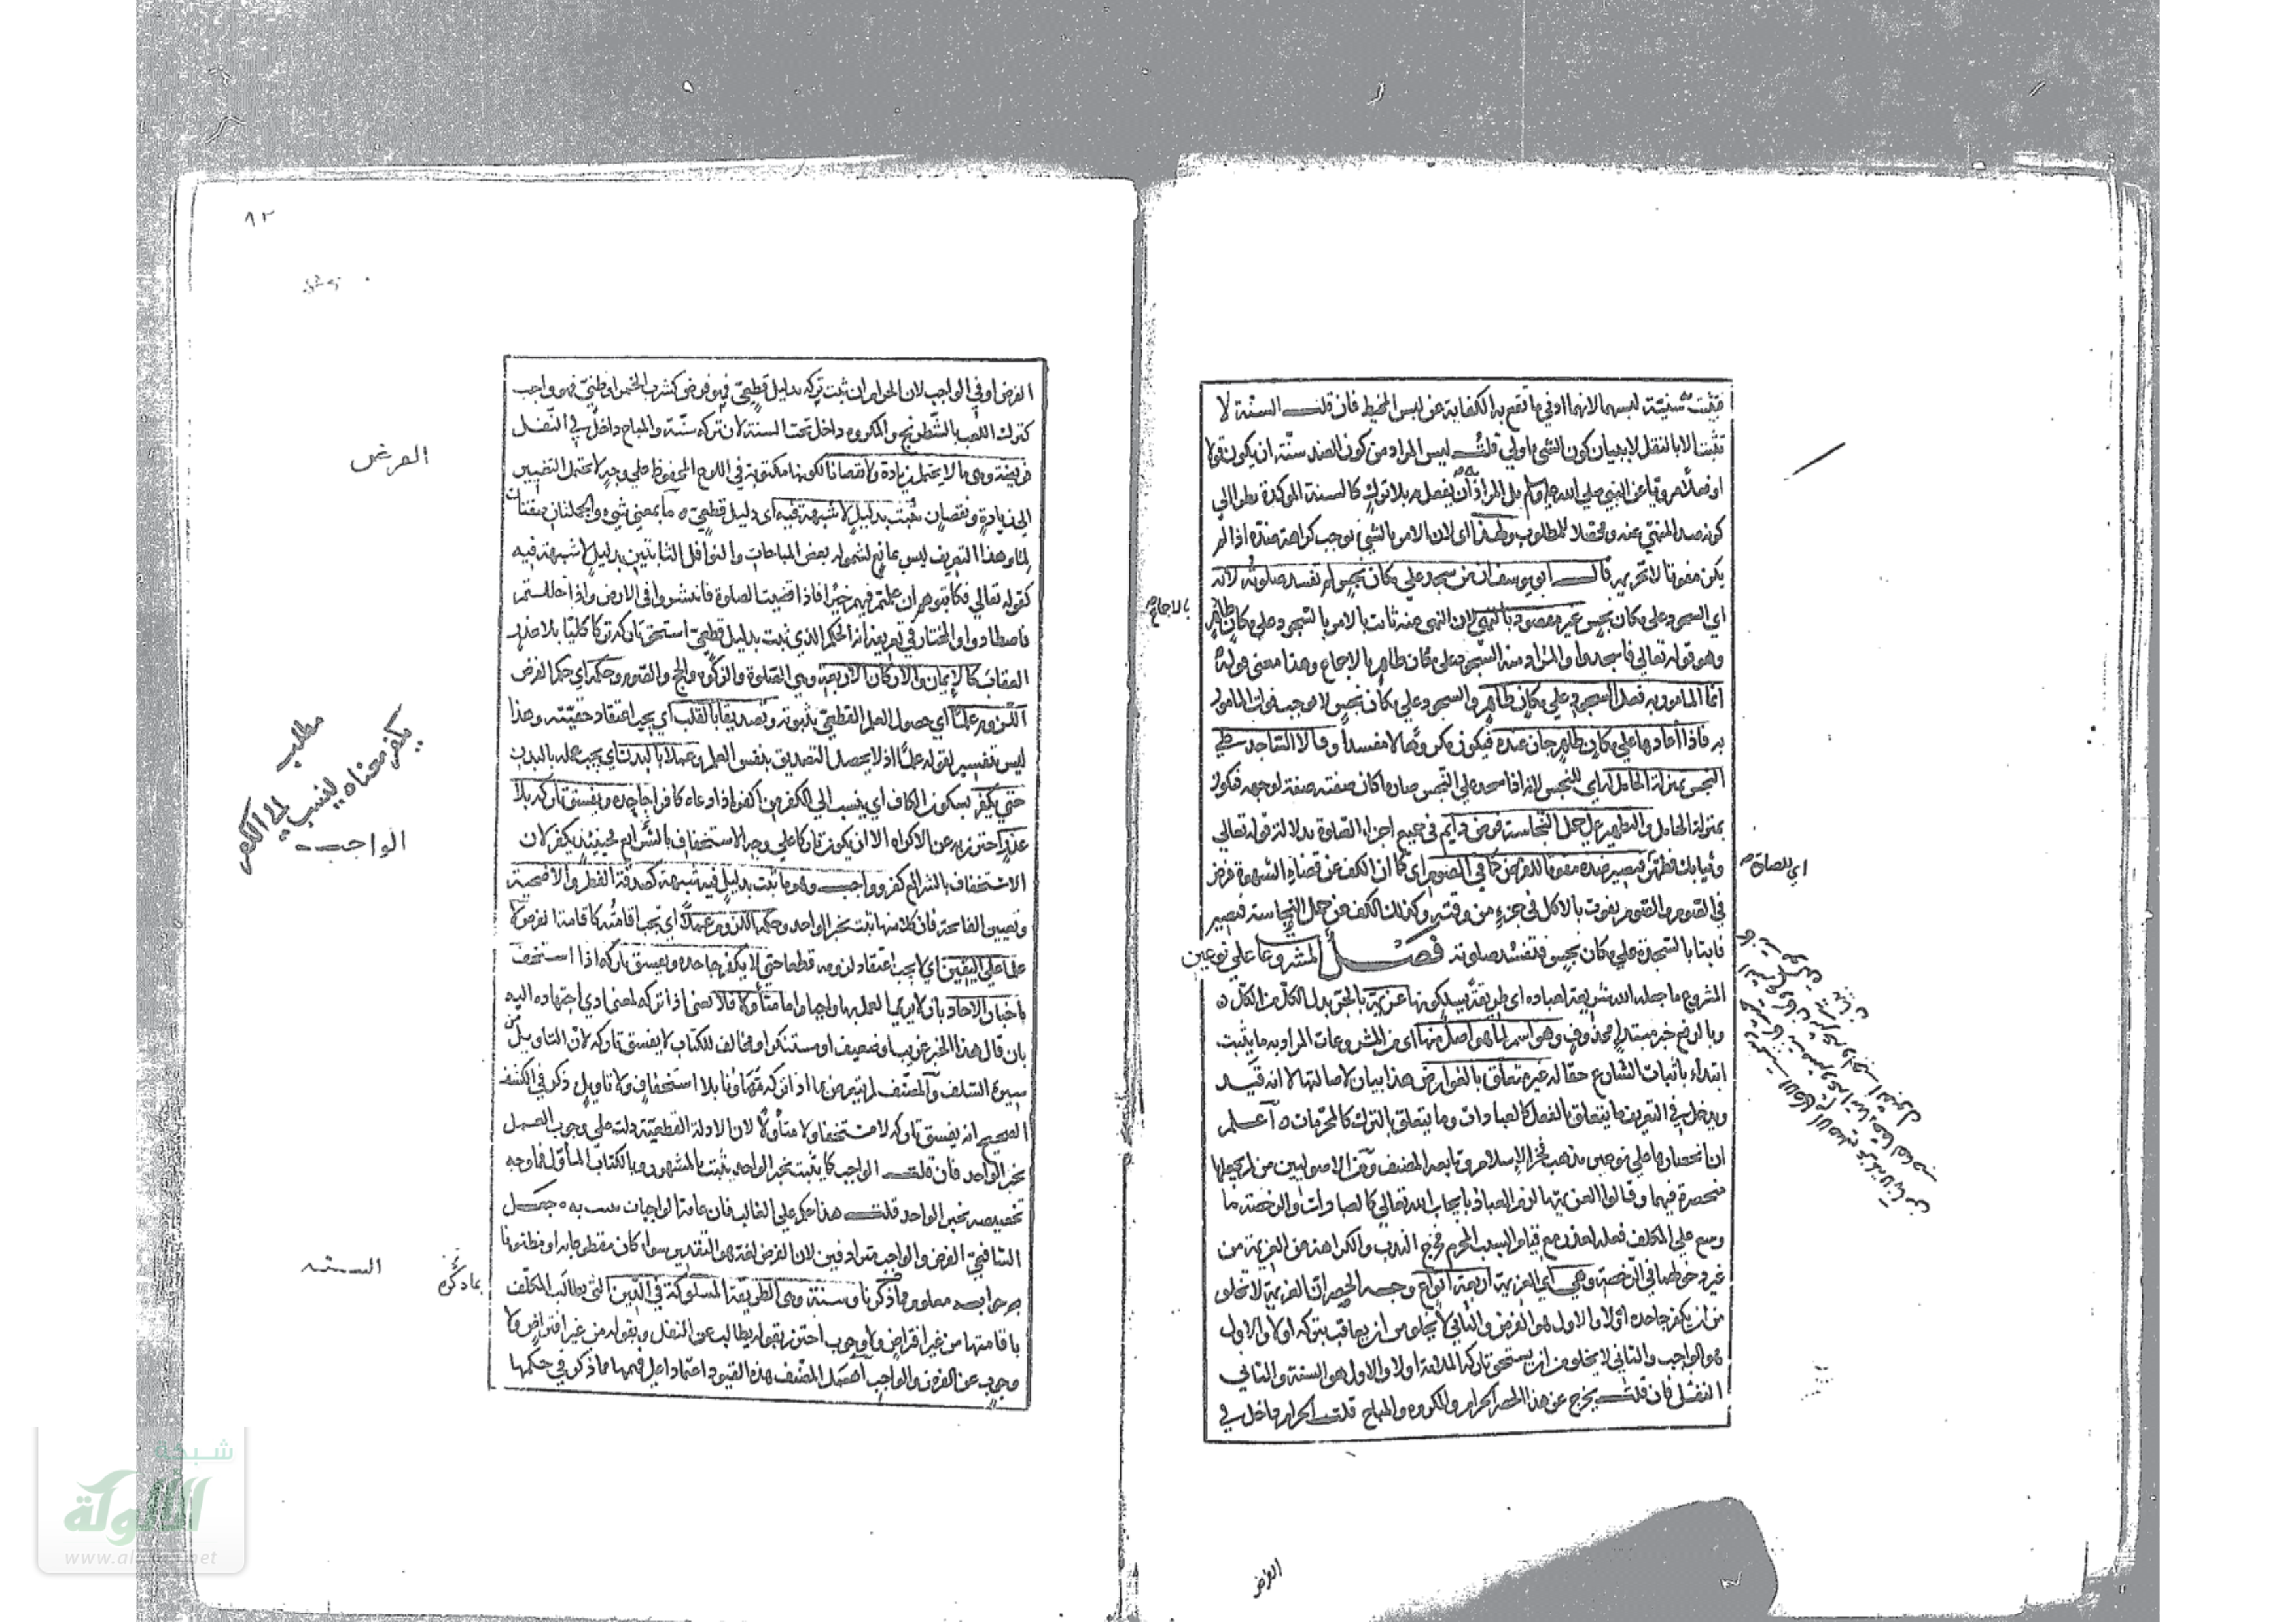 فثبت سنية لبسهما لانهما ادنى ما تقع به الكفاية عن لبس المخيط فان قلت السنة لا
تثبت الا بالنقل لا ببيان كون الشيء اولى قلت ليس المراد من كون الضد سنة ان يكون قولا
او فعلا مرويا عن النبي صلى الله عليه وسلم بل المراد به ان يفعل بلا ترك كالسنة المؤكدة نظرا الى
كونه ضد المنهي عنه ومحصلا للمطلوب ولهذا اى لان الامر بالشيء يوجب كراهة ضده اذا لم
يكن مفوتا لا تحريمه قال ابو يوسف ان من سجد على مكان نجس لم تفسد صلوته لانه
بالاجماع
اي السجود على مكان نجس غير مقصود بالنهي لان النهى عنه ثابت بالامر بالسجود على مكان طاهر
وهو قوله تعالى فاسجدوا والمراد منه السجود على مكان طاهر بالاجماع وهذا معنى قوله
انما المامور به فعل السجود على مكان طاهر والسجود على مكان نجس لا يوجب فوات المامور
به فاذا اعادها على مكان طاهر جاز عنده فيكون مكروها لا مفسدا وقالا الساجد على
النجس بمنزلة الحامل له اي للنجس لانه اذا سجد على النجس صار ما كان صفته صفة لوجهه فيكون
بمنزلة الحامل والتطهير عن حمل النجاسة فرض دايم في جميع اجزاء الصلوة بدلالة قوله تعالى
وثيابك فطهر فيصير ضده مفوتا للفرض كما في الصوم اى كما ان الكف عن قضاء الشهوة فرض
اي للصلوة
في الصوم والصوم يفوت بالاكل في جزء من وقته وكذلك الكف عن حمل النجاسة فيصير
فائتا بالسجدة على مكان نجس فتفسد صلوته فصل المشروعات على نوعين
المشروع ما جعله الله شريعة لعباده اى طريقة يسلكونها عزيمة بالجر بدل الكل من الكل
وبالرفع خبر مبتدا محذوف وهو اسم لما هو اصل منها اى من المشروعات المراد به ما يثبت
ابتداء باثبات الشارع حقا له غير متعلق بالعوارض هذا بيان لاصالتها لا انه قيد
ويدخل في التعريف ما يتعلق بالفعل كالعبادات وما يتعلق بالترك كالمحرمات اعلم
ان انحصارها على نوعين مذهب فخر الاسلام وتابعه المصنف ومن الاصوليين من لم يجعلها
منحصرة فيهما وقالوا العزيمة ما لزم العباد بايجاب الله تعالى كالعبادات والرخصة ما
وسع على المكلف فعله لعذر مع قيام السبب المحرم فخرج الندب والكراهة عن العزيمة من
غير دخولهما في الرخصة وهي اي العزيمة اربعة انواع وجه الحصر ان العزيمة لا تخلو
من ان يكفر جاحده اولا والاول هو الفرض والثاني لا يخلو من ان يعاقب بتركه اولا والاول
هو الواجب والثاني لا يخلو من ان يستحق تاركه الملامة اولا والاول هو السنة والثاني
النفل فان قلت يخرج عن هذا الحصر الحرام والمكروه والمباح قلت الحرام داخل في
الفرض
٨٢
الفرض او في الواجب لان الحرام ان ثبت تركه بدليل قطعي فهو فرض كشرب الخمر او ظني فهو واجب
كترك اللعب بالشطرنج والمكروه داخل تحت السنة لان تركه سنة والمباح داخل في النفل
الفرض
فريضة وهي ما لا يحتمل زيادة ولا نقصانا لكونها مكتوبة في اللوح المحفوظ على وجه لا يحتمل التغيير
الى زيادة ونقصان ثبت بدليل لا شبهة فيه اى دليل قطعي ما بمعنى شيء والجملتان صفتان
لما وهذا التعريف ليس بمانع لشموله بعض المباحات والنوافل الثابتين بدليل لا شبهة فيه
كقوله تعالى فكاتبوهم ان علمتم فيهم خيرا فاذا قضيت الصلوة فانتشروا في الارض واذا حللتم
فاصطادوا والمختار في تعريفه انه الحكم الذي ثبت بدليل قطعي استحق تاركه تركا كليا بلا عذر
العقاب كالايمان والاركان الاربعة وهي الصلوة والزكوة والحج والصوم وحكمه اي حكم الفرض
اللزوم علما اي حصول العلم القطعي بثبوته وتصديقا بالقلب اي يجب اعتقاد حقيته وهذا
ليس تفسير لقوله علما اذ لا يحصل التصديق بنفس العلم وعملا بالبدن اي يجب عمله بالبدن
مطلب
يكفر معناه ينسب الى الكفر
حتى يكفر بسكون الكاف اي ينسب الى الكفر من اكفره اذا دعاه كافرا جاحده ويفسق تاركه بلا
عذر احترز به عن الاكراه الا ان يكون تاركا على وجه الاستخفاف بالشرائع فحينئذ يكفر لان
الواجب
الاستخفاف بالشرائع كفر وواجب وهو ما ثبت بدليل فيه شبهة كصدقة الفطر والاضحية
وتعيين الفاتحة فان كلا منها ثبت بخبر الواحد وحكمه اللزوم عملا اي يجب اقامته كاقامة الفرض لا
علما على اليقين اي لا يجب اعتقاد لزومه قطعا حتى لا يكفر جاحده ويفسق تاركه اذا استخف
باخبار الاحاد بان لا يرى العمل بها واجبا واما متاولا فلا يعنى اذا تركه لمعنى ادي اجتهاده اليه
بان قال هذا الخبر غريب او ضعيف او مستنكر او مخالف للكتاب لا يفسق تاركه لان التاويل من
سيرة السلف والمصنف لم يتعرض عما اذا تركه تهاونا بلا استخفاف ولا تاويل ذكر في الكشف
الصحيح انه يفسق تاركه لا مستخفا ولا متاولا لان الادلة القطعية دلت على وجوب العمل
بخبر الواحد فان قلت الواجب كما يثبت بخبر الواحد يثبت بالمشهور وبالكتاب المأول فما وجه
تخصيصه بخبر الواحد قلت هذا حكم على الغالب فان عامة الواجبات به جعل
الشافعي الفرض والواجب مترادفين لان الفرض لغة هو التقدير سواء كان مقطوعا به او مظنونا
به جوابه معلوم مما ذكرنا وسنة وهي الطريقة المسلوكة في الدين التي يطالب المكلف
السنة
باقامتها من غير افتراض ولا وجوب احترز بقوله يطالب عن النفل وبقوله من غير افتراض ولا
وجوب عن الفرض والواجب اهمل المصنف هذه القيود اعتمادا على فهمها مما ذكر في حكمها